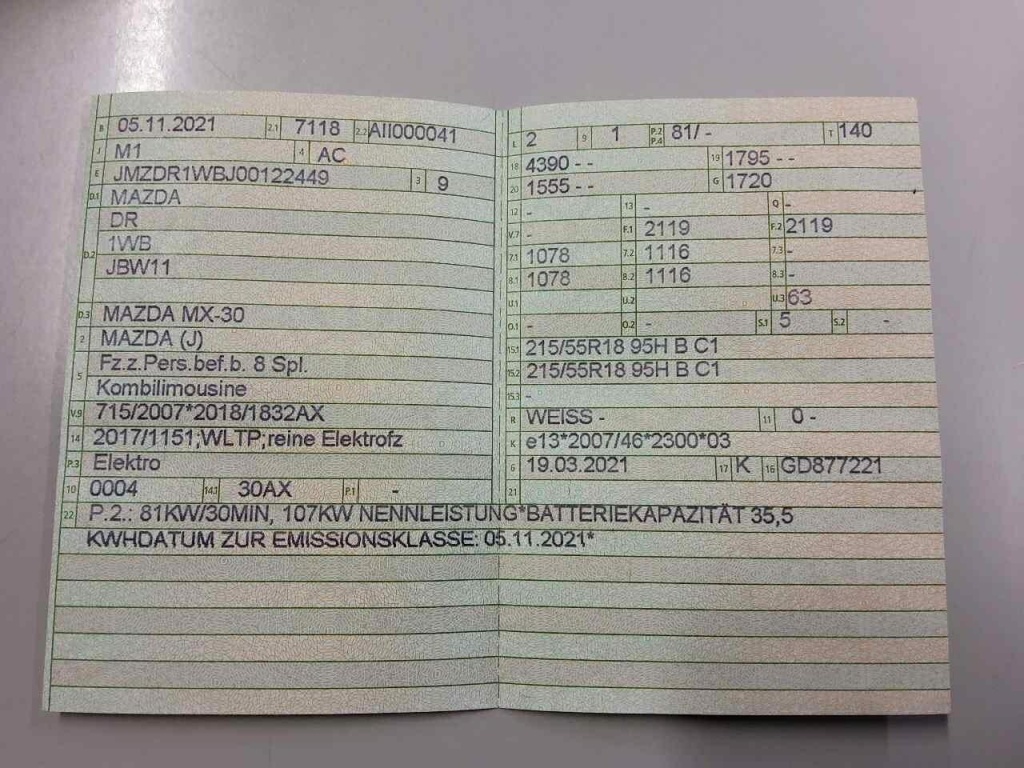 B 05.11.2021 2.1 7118 2.2 AII000041
J M1 4 AC
E JMZDR1WBJ00122449 3 9
D.1 MAZDA
DR
D.2 1WB
JBW11
D.3 MAZDA MX-30
2 MAZDA (J)
5 Fz.z.Pers.bef.b. 8 Spl.
Kombilimousine
V.9 715/2007*2018/1832AX
14 2017/1151;WLTP;reine Elektrofz
P.3 Elektro
10 0004 14.1 30AX P.1 -
22 P.2.: 81KW/30MIN, 107KW NENNLEISTUNG*BATTERIEKAPAZITÄT 35,5
KWHDATUM ZUR EMISSIONSKLASSE: 05.11.2021*
L 2 9 1 P.2 P.4 81/ - T 140
18 4390 - - 19 1795 - -
20 1555 - - G 1720
12 - 13 - Q -
V.7 - F.1 2119 F.2 2119
7.1 1078 7.2 1116 7.3 -
8.1 1078 8.2 1116 8.3 -
U.1 U.2 U.3 63
O.1 - O.2 - S.1 5 S.2 -
15.1 215/55R18 95H B C1
15.2 215/55R18 95H B C1
15.3 -
R WEISS - 11 0 -
K e13*2007/46*2300*03
6 19.03.2021 17 K 16 GD877221
21